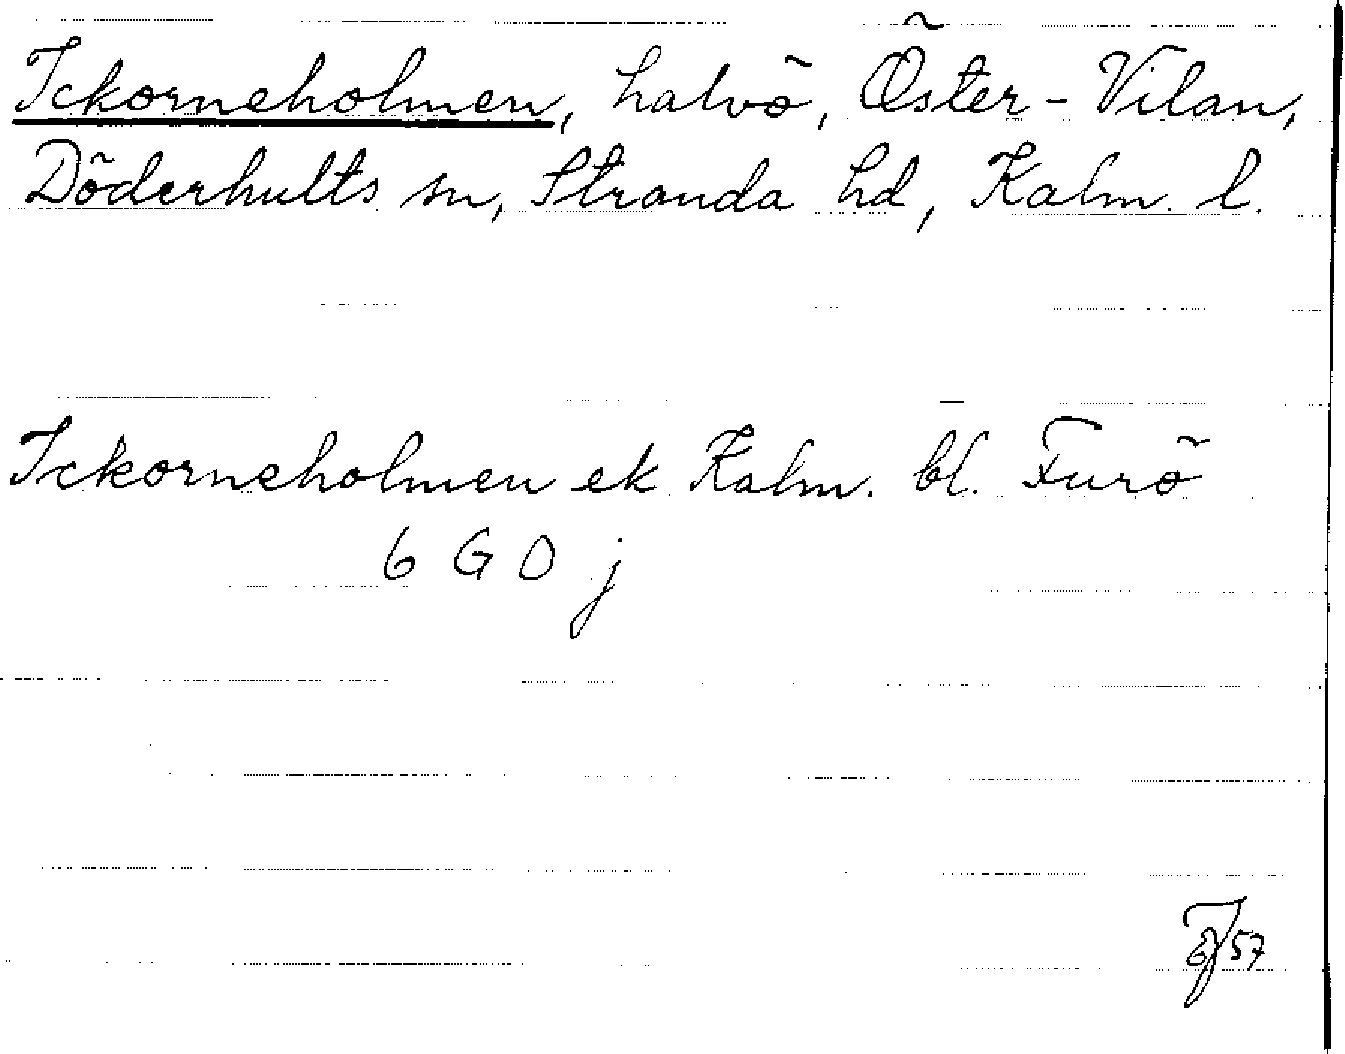 Ickorneholmen, halvö, Öster-Vilan,
Döderhults sn, Stranda hd, Kalm. l.
Ickorneholmen ek Kalm. bl. Furö
6 G 0 j
57